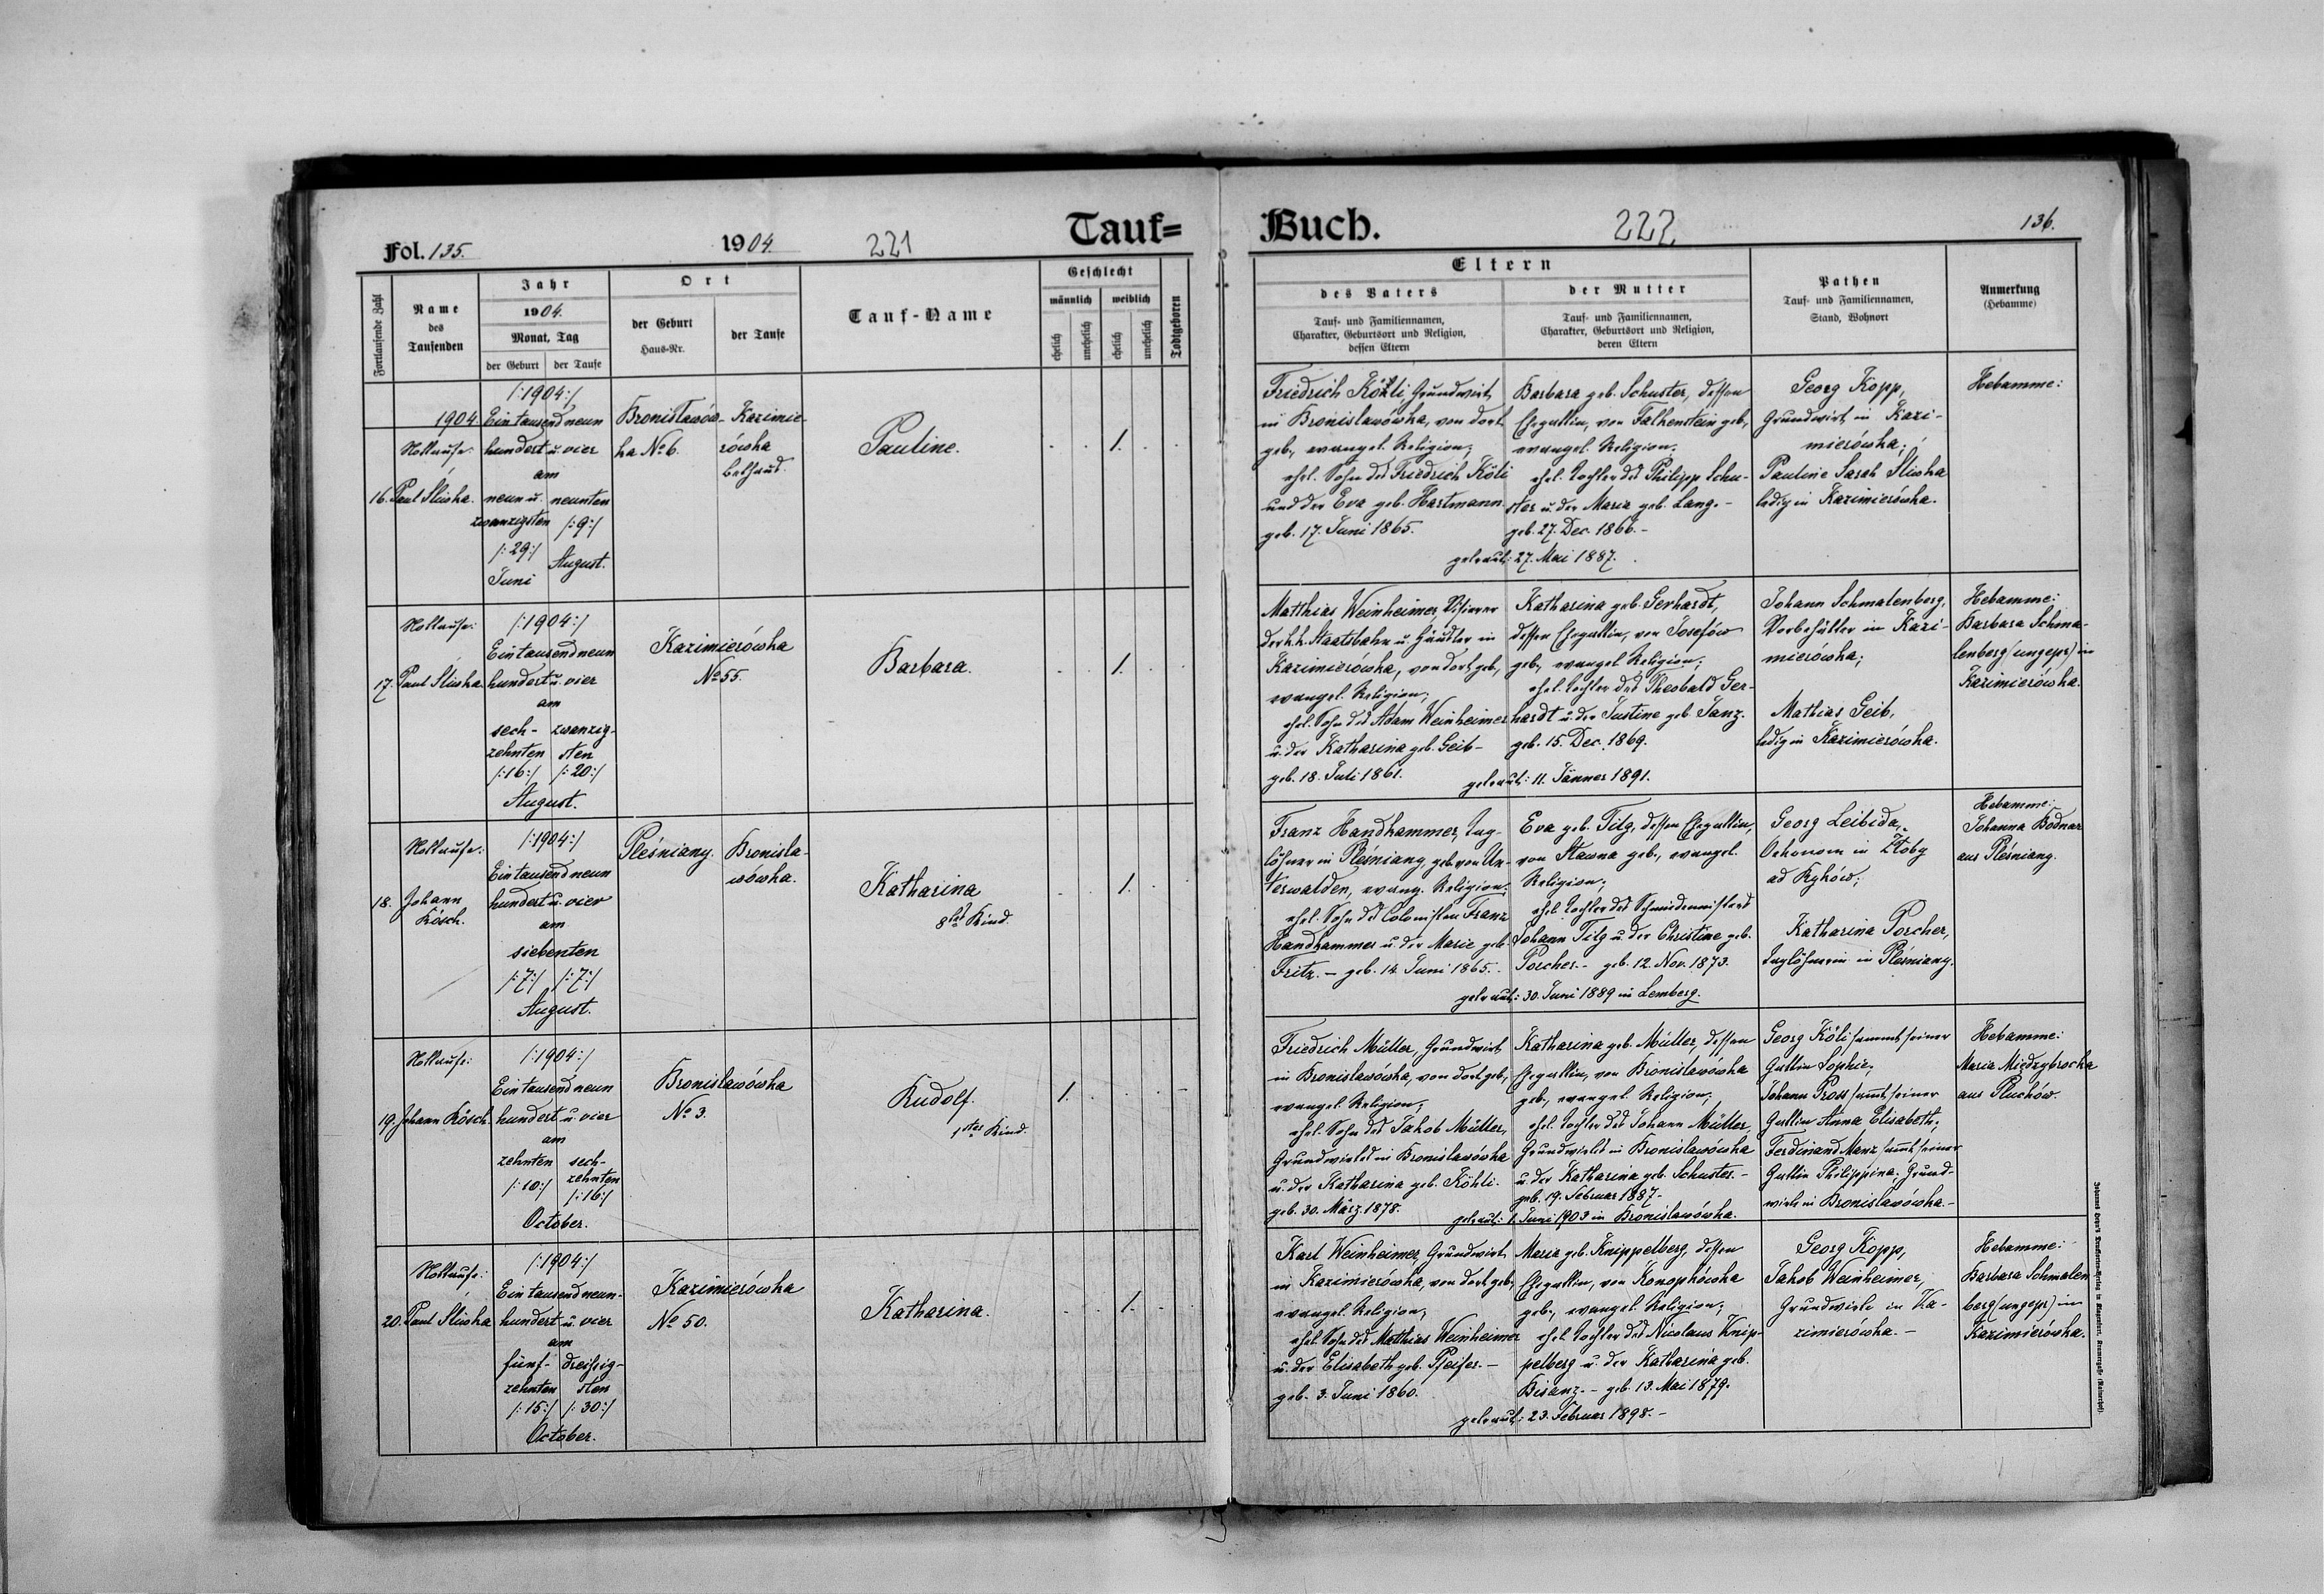 Fol. 135.
1904.
221
Tauf=
Fortlaufende Zahl
Name
des
Taufenden
Jahr
1904.
Monat, Tag
der Geburt
der Taufe
Ort
der Geburt
Haus-Nr.
der Taufe
Tauf-Name
Geschlecht
männlich
weiblich
ehelich
unehelich
ehelich
unehelich
Todtgeboren
1904
Nottaufe:
16. Paul Śliwka.
/:1904:/
Ein tausend neun
hundert u. vier
am
neun u.
zwanzigsten
/:29:/
Juni
neunten
/:9:/
August.
Bronisławów-
ka No 6.
Kazimie-
rówka
Bethaus.
Pauline.
1.
Nottaufe:
17. Paul Śliwka.
/:1904:/
Ein tausend neun
hundert u. vier
am
sech-
zehnten
/:16:/
zwanzig-
sten
/:20:/
August.
Kazimierówka
No 55.
Barbara.
1.
Nottaufe:
18. Johann
Kösch.
/:1904:/
Ein tausend neun
hundert u. vier
am
siebenten
/:7:/ /:7:/
August.
Pleśniany.
Bronisła-
wówka.
Katharina
8tes Kind
1.
Nottaufe:
19. Johann Kösch.
/:1904:/
Ein tausend neun
hundert u. vier
am
zehnten
/:10:/
sech-
zehnten
/:16:/
October.
Bronisławówka
No 3.
Rudolf.
1stes Kind.
1.
Nottaufe:
20. Paul Śliwka
/:1904:/
Ein tausend neun-
hundert u. vier
am
fünf-
zehnten
/:15:/
dreißig-
sten
/:30:/
October.
Kazimierówka
No 50.
Katharina.
1.
Buch.
222
136.
Eltern
des Vaters
Tauf- und Familiennamen,
Charakter, Geburtsort und Religion,
dessen Eltern
der Mutter
Tauf- und Familiennamen,
Charakter, Geburtsort und Religion,
deren Eltern
Pathen
Tauf- und Familiennamen,
Stand, Wohnort
Anmerkung
(Hebamme)
Friedrich Köhli, Grundwirt
in Bronisławówka, von dort
geb., evangel. Religion;
ehel. Sohn des Friedrich Köli
und der Eva geb. Hartmann.
geb. 17. Juni 1865.
Barbara geb. Schuster, dessen
Ehegattin, von Falkenstein geb.,
evangel. Religion;
ehel. Tochter des Philipp Schu-
ster u. der Maria geb. Lang.-
geb. 27. Dec. 1866.-
getraut: 27. Mai 1887.
Georg Kopp,
Grundwirt in Kazi-
mierówka;
Pauline Sarah Śliwka
ledig in Kazimierówka.
Hebamme:
Matthias Weinheimer,
der k.k. Staatsbahn u. Händler in
Kazimierowka, von dort geb.,
evangel. Religion;
ehel. Sohn des Adam Weinheimer
u. der Katharina geb. Geib-
geb. 18. Juli 1861.
Katharina geb. Gerhardt,
dessen Ehegattin, von Josefów
geb., evangel. Religion;
ehel. Tochter des Theobald Ger-
hardt u. der Justine geb. Janz.
geb. 15. Dec. 1869.
getraut: 11. Jänner 1891.
Johann Schmalenberg,
Vorbehälter in Kazi-
mierówka;
Mathias Geib,
ledig in Kazimierówka.
Hebamme:
Barbara Schma-
lenberg (ungepr.) in
Kazimierówka.
Franz Handkammer, Tag-
löhner in Pleśniany, geb. von Un-
terwalden, evang. Religion;
ehel. Sohn des Colonisten Franz
Handkammer u. der Marie geb.
Fritz.- geb. 14. Juni 1865.
Eva geb. Tilg, dessen Ehegattin,
von Sławna geb., evangel.
Religion;
ehel. Tochter des Schmiedemeisters
Johann Tilg u. der Christine geb.
Porcher.- geb. 12. Nov. 1873.
getraut: 30. Juni 1889 in Lemberg.
Georg Leibida,
Oekonom in Żłoby
ad Kyków;
Katharina Porcher,
Taglöhnerin in Pleśniany.
Hebamme:
Johanna Bodnar
aus Pleśniany.
Friedrich Müller, Grundwirt
in Bronisławówka, von dort geb.,
evangel. Religion;
ehel. Sohn des Jakob Müller,
Grundwirts in Bronisławówka
u. der Katharina geb. Köhli.
geb. 30. März 1878.
Katharina geb. Müller, dessen
Ehegattin, von Bronisławówka
geb., evangel. Religion;
ehel. Tochter des Johann Müller,
Grundwirts in Bronisławówka
u. der Katharina geb. Schuster.-
geb. 19. Februar 1887-
getraut: 1. Juni 1903 in Bronisławówka.
Georg Köli sammt seiner
Gattin Sophie;
Johann Pross samt seiner
Gattin Anna Elisabeth;
Ferdinand Manz samt seiner
Gattin Philippina; Grund-
wirte in Bronisławówka.-
Hebamme:
Maria Międzybrocka
aus Pluchów.
Karl Weinheimer, Grundwirt
in Kazimierówka, von dort geb.,
evangel. Religion;
ehel. Sohn des Mathias Weinheimer
u. der Elisabeth geb. Pfeifer.-
geb. 3. Juni 1860.
Maria geb. Knippelberg, dessen
Ehegattin, von Konopkówka
geb., evangel. Religion;
ehel. Tochter des Nicolaus Knip-
pelberg u. der Katharina geb.
Bisanz.- geb. 13. Mai 1879.
getraut: 23. Februar 1898.-
Georg Kopp,
Jakob Weinheimer,
Grundwirte in Ka-
zimierówka.-
Hebamme:
Barbara Schmalen
berg (ungepr.) in
Kazimierówka.